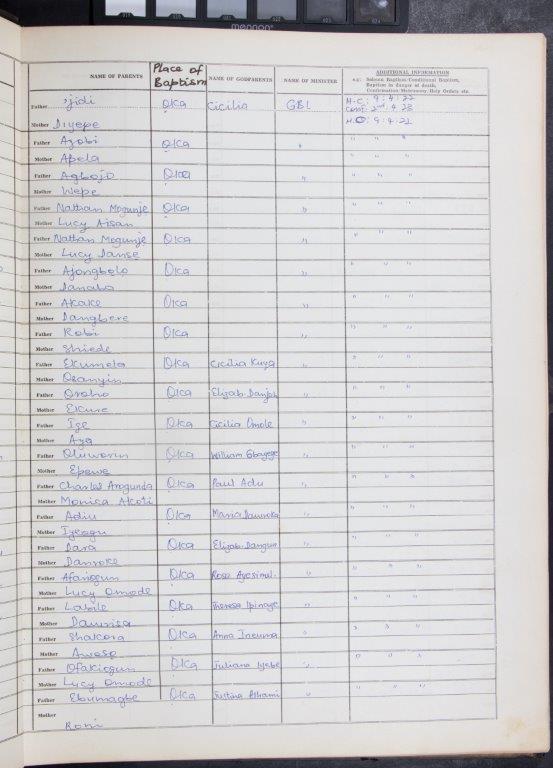 NAME OF PARENTS Place of Baptism NAME OF GODPARENTS NAME OF MINISTER ADDITIONAL INFORMATION
e.g: Solemn Baptism/Conditional Baptism,
Baptism in danger of death,
Confirmation/Matrimony/Holy Orders etc.
Father Ojidi Oka Cicilia GBL H.C: 9:4:22
Conf: 2nd:4:23
Mother Diyepe H.O: 9:4:21
Father Azobi Oka " " " "
Mother Abela
Father Agbojo Oka " " " "
Mother Wepe
Father Nathan Mogunje Oka " " " "
Mother Lucy Aisan
Father Nathan Mogunje Oka " " " "
Mother Lucy Janse
Father Ajongbolo Oka " " " "
Mother Janaba
Father Akake Oka " " " "
Mother Dangbere
Father Robi Oka " " " "
Mother Shiede
Father Ekumeta Oka Cicilia Kuya " " " "
Mother Osanyin
Father Oroho Oka Elizab. Danjah " " " "
Mother Ekure
Father Ige Oka Cicilia Omole " " " "
Mother Aya
Father Oluworin Oka William Gbagege " " " "
Mother Epewe
Father Charles Arogunda Oka Paul Adu " " " "
Mother Monica Akoti
Father Adiu Oka Maria " " " "
Mother
Father Dara Oka Elizab. Dangun " " " "
Mother Danroke
Father Afariogun Oka Rose " " " "
Mother Lucy Omode
Father Labile Oka Theresa Ipinaye " " " "
Mother Daurisa
Father Shakora Oka Anna " " " "
Mother Awose
Father Ofakiogun Oka Juliana Iyebe " " " "
Mother Lucy Omode
Father Ebumagbe Oka Justina " " " "
Mother Roni